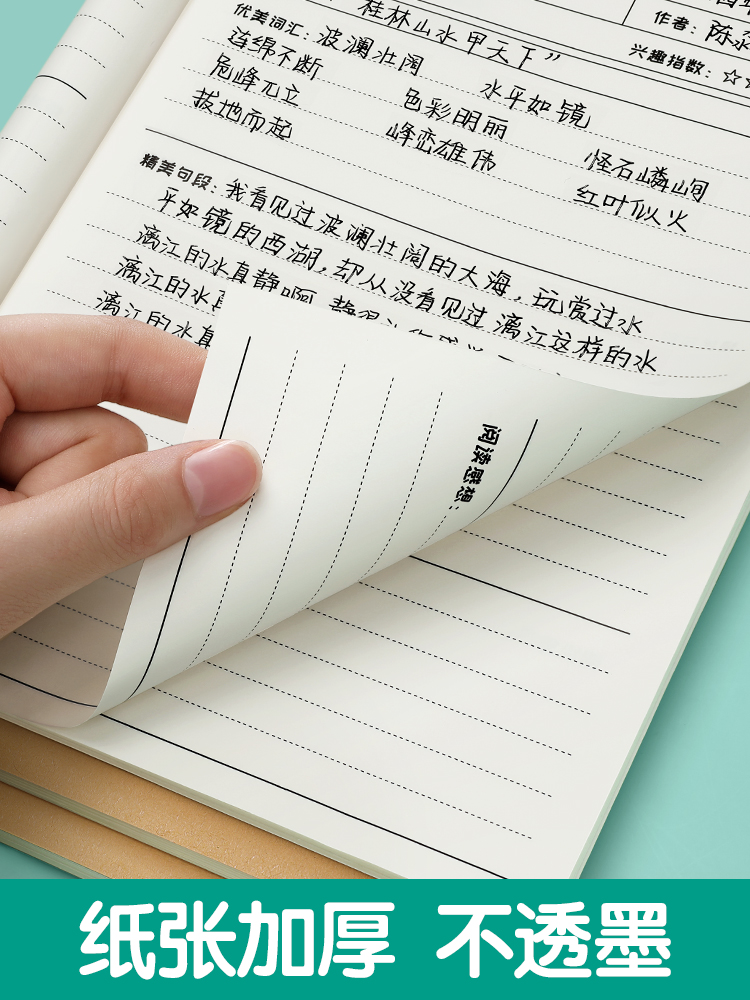 作者：陈
兴趣指数：☆
桂林山水甲天下”
优美词汇：波澜壮阔 水平如镜
连绵不断 色彩明丽 怪石嶙峋
危峰兀立 峰峦雄伟 红叶似火
拔地而起
精美句段：我看见过波澜壮阔的大海，玩赏过水
平如镜的西湖，却从没看见过漓江这样的水
漓江的水真静啊
漓江的水
漓江的水真
阅读感想：
纸张加厚 不透墨